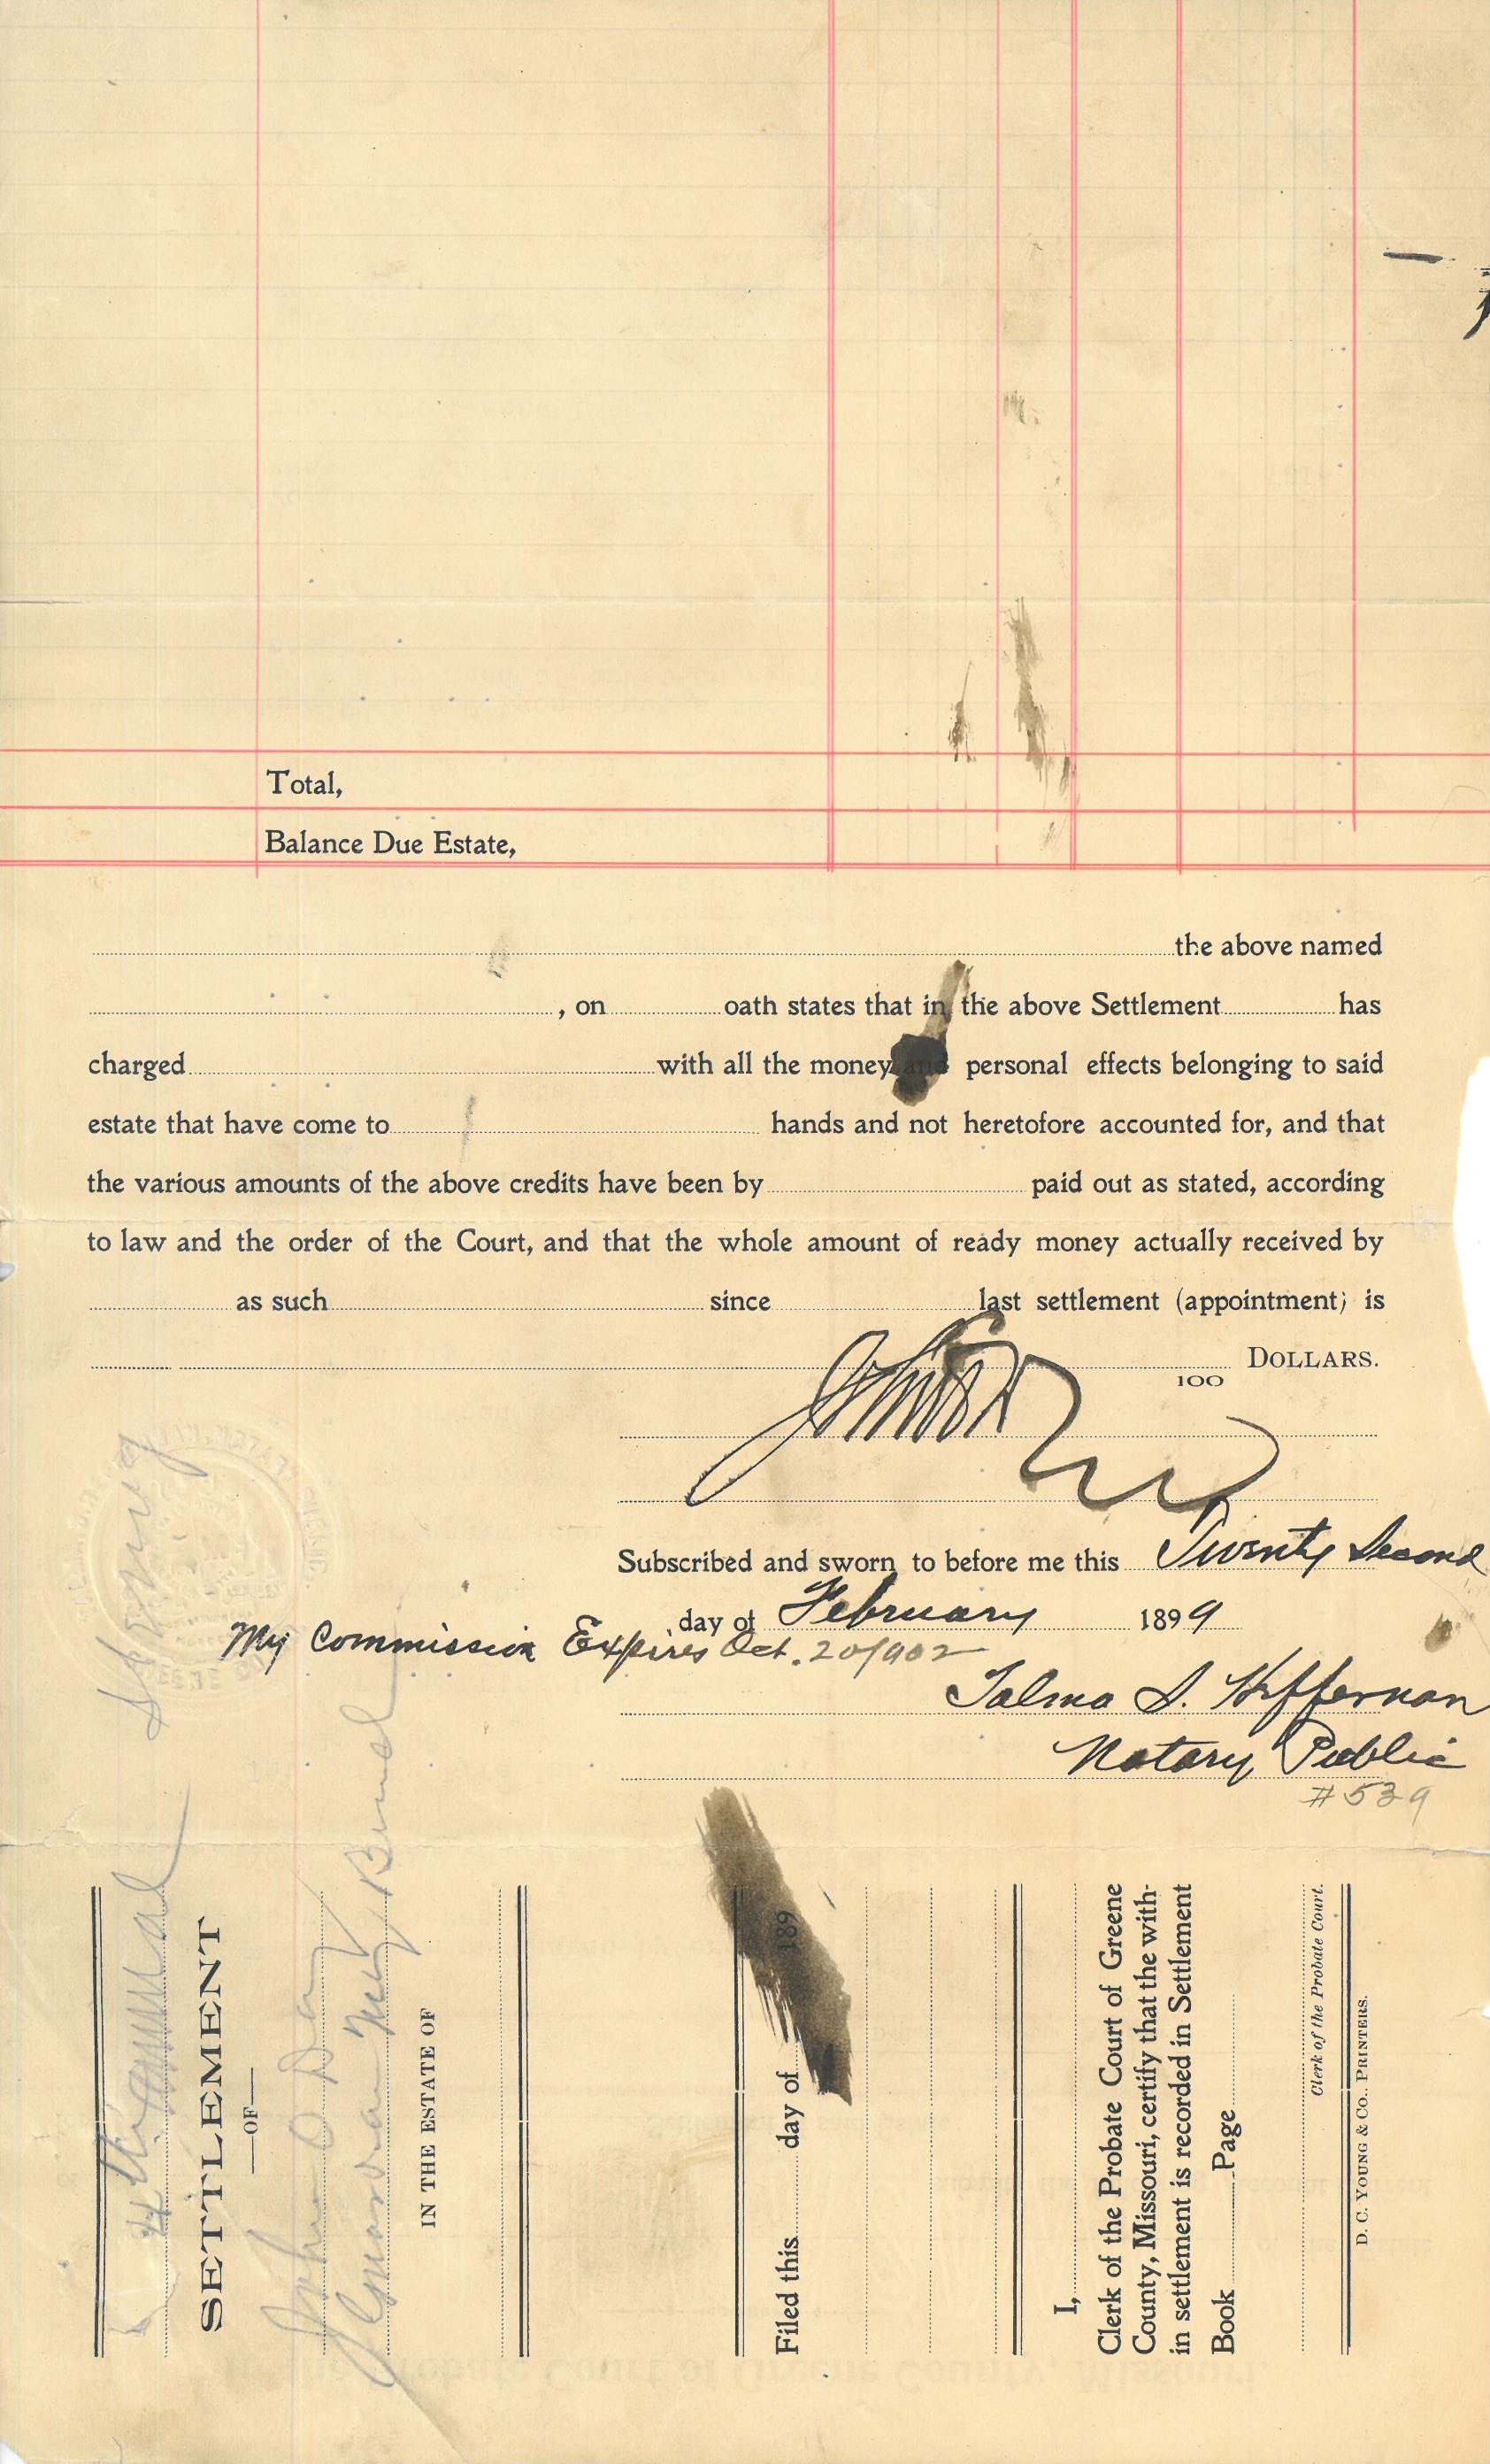 Total,
Balance Due Estate,
the above named
, on oath states that in the above Settlement has
charged with all the money and personal effects belonging to said
estate that have come to hands and not heretofore accounted for, and that
the various amounts of the above credits have been by paid out as stated, according
to law and the order of the Court, and that the whole amount of ready money actually received by
as such since last settlement (appointment) is
100 DOLLARS.
Subscribed and sworn to before me this Twenty Second
day of February 1899
My Commission Expires Oct. 20/902
Talma S. Heffernan
Notary Public
#539
SETTLEMENT
—OF—
John O Day
IN THE ESTATE OF
Filed this day of 189
I,
Clerk of the Probate Court of Greene
County, Missouri, certify that the with-
in settlement is recorded in Settlement
Book Page
Clerk of the Probate Court.
D. C. YOUNG & CO., PRINTERS.